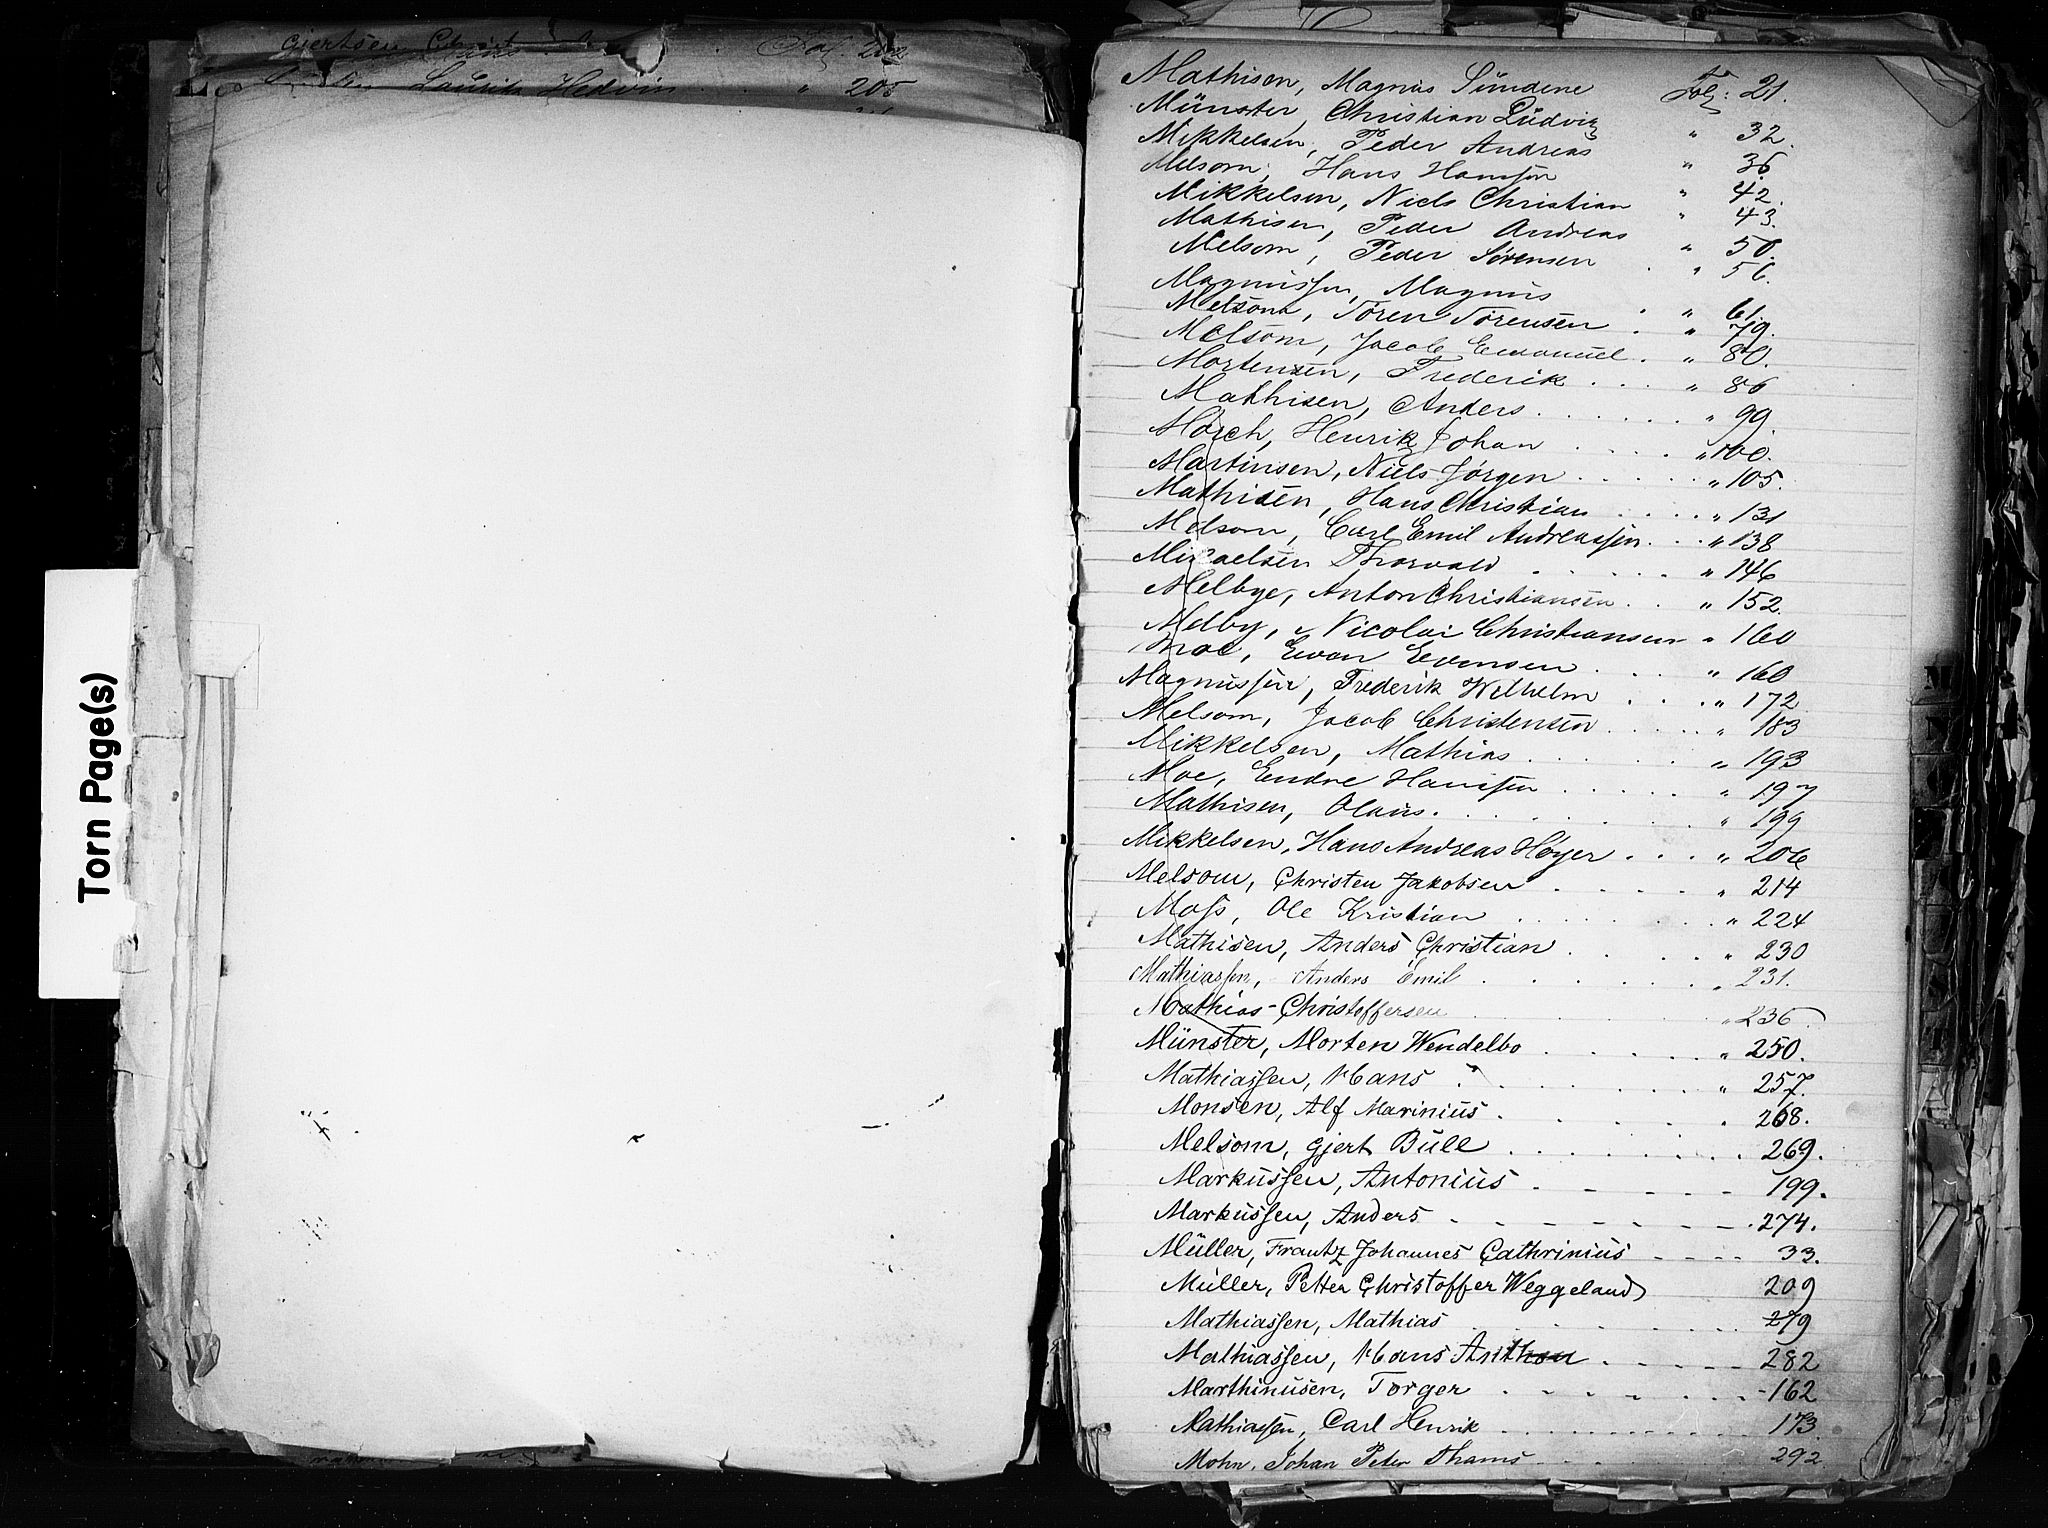 Gjertsen Christ Fol. 202
Laurits Hedvin " 205
Torn Page(s)
Mathisen, Magnus Sündene Fol: 21.
Münster, Christian Lüdvig " 32.
Mikkelsen, Peder Andreas " 36
Melsom, Hans Hansen " 42.
Mikkelsen, Niels Christian " 43.
Mathisen, Peder Andreas " 50.
Melsom, Peder Sørensen " 56.
Magnussen, Magnus " 61.
Melsom, Søren Sørensen " 79.
Melsom, Jacob Emanuel " 80.
Mortensen, Frederik " 86
Mathisen, Anders " 99.
Horch, Henrik Johan " 100.
Martinsen, Niels Jørgen " 105.
Mathisen, Hans Christian " 131
Melsom, Carl Emil Andreassen " 138
Micaelsen Thorvald " 146
Melbye, Anton Christiansen " 152.
Melby, Nicolai Christiansen " 160
Moe, Evan Evensen " 160
Magnussen, Frederik Wilhelm " 172
Melsom, Jacob Christensen " 183
Mikkelsen, Mathias " 193
Moe, Endre Hansen " 197
Mathisen, Olaus. " 199
Mikkelsen, Hans Andreas Høyer " 206
Melsom, Christen Jakobsen " 214
Moss, Ole Kristian " 224
Mathisen, Anders Christian " 230
Mathiassen, Anders Emil " 231.
Mathias-Christoffersen " 236
Münster, Morten Wendelbo " 250.
Mathiassen, Hans " 257.
Monsen, Alf Marinius " 268.
Melsom, Gjert Büll 269.
Markussen, Antonius 199.
Markussen, Anders 274.
Müller, Frantz Johannes Cathrinius 33.
Müller, Petter Christoffer Weggeland 209
Mathiassen, Mathias 279
Mathiassen, Hans Anthon 282
Marthinusen, Torger 162
Mathiassen, Carl Henrik 173
Mohn, Johan Peter Thams 292
M
N
O